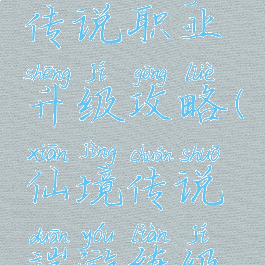 传说职业
shēng jí gōng lüè
升级攻略(
xiān jìng chuán shuō
仙境传说
duān yóu liàn jí
端游练级